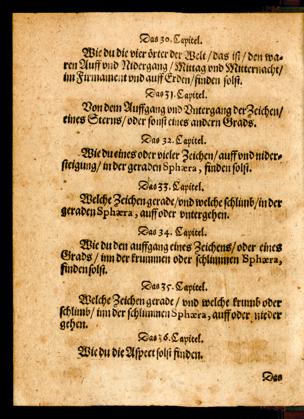 Das 30. Capitel.
Wie du die vier örter der Welt / das ist / den wa-
ren Auff vnd Nidergang / Mittag vnd Mitternacht /
im Firmament vnd auff Erden / finden solst.
Das 31. Capitel.
Von dem Auffgang vnd Vntergang der Zeichen /
eines Sterns / oder sonst eines andern Grads.
Das 32. Capitel.
Wie du eines oder vieler Zeichen / auff vnd nider-
steigung / in der geraden Sphæra, finden solst.
Das 33. Capitel.
Welche Zeichen gerade / vnd welche schlimb / in der
geraden Sphæra, auff oder vntergehen.
Das 34. Capitel.
Wie du den auffgang eines Zeichens / oder eines
Grads / inn der krummen oder schlimmen Sphæra,
finden solst.
Das 35. Capitel.
Welche Zeichen gerade / vnd welche krumb oder
schlimb / inn der schlimmen Sphæra, auff oder nieder
gehen.
Das 36. Capitel.
Wie du die Aspect solst finden.
Das